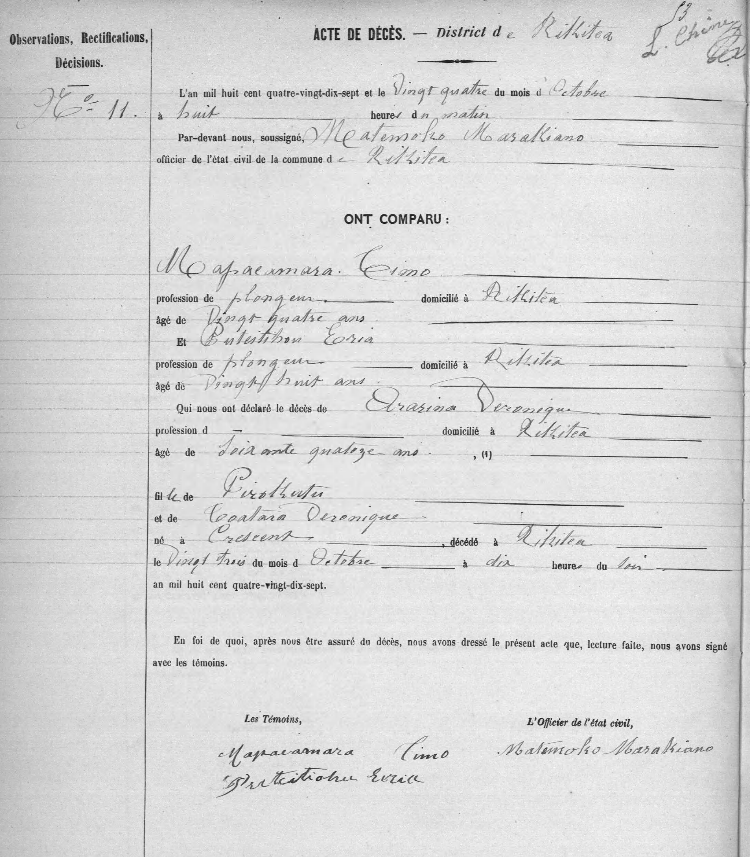 53
Observations, Rectifications,
Décisions.
ACTE DE DÉCÈS. — District de Rikitea
N° 11.
L'an mil huit cent quatre-vingt-dix-sept et le Vingt quatre du mois d'Octobre
à huit heures du matin
Par-devant nous, soussigné, Matemoko Marakiano
officier de l'état civil de la commune de Rikitea
ONT COMPARU :
Mapaeamara Timo
profession de plongeur domicilié à Rikitea
âgé de Vingt quatre ans
Et Eria
profession de plongeur domicilié à Rikitea
âgé de Vingt huit ans
Qui nous ont déclaré le décès de Ararina Veronique
profession d — domicilié à Rikitea
âgé de Soixante quatoze ans , (1)
fille de
et de Toatara Veronique
né à Crescent , décédé à Rikitea
le Vingt trois du mois d Octobre à dix heures du soir
an mil huit cent quatre-vingt-dix-sept.
En foi de quoi, après nous être assuré du décès, nous avons dressé le présent acte que, lecture faite, nous avons signé
avec les témoins.
Les Témoins,
L'Officier de l'état civil,
Mapaeamara Timo
Matemoko Marakiano
Eria